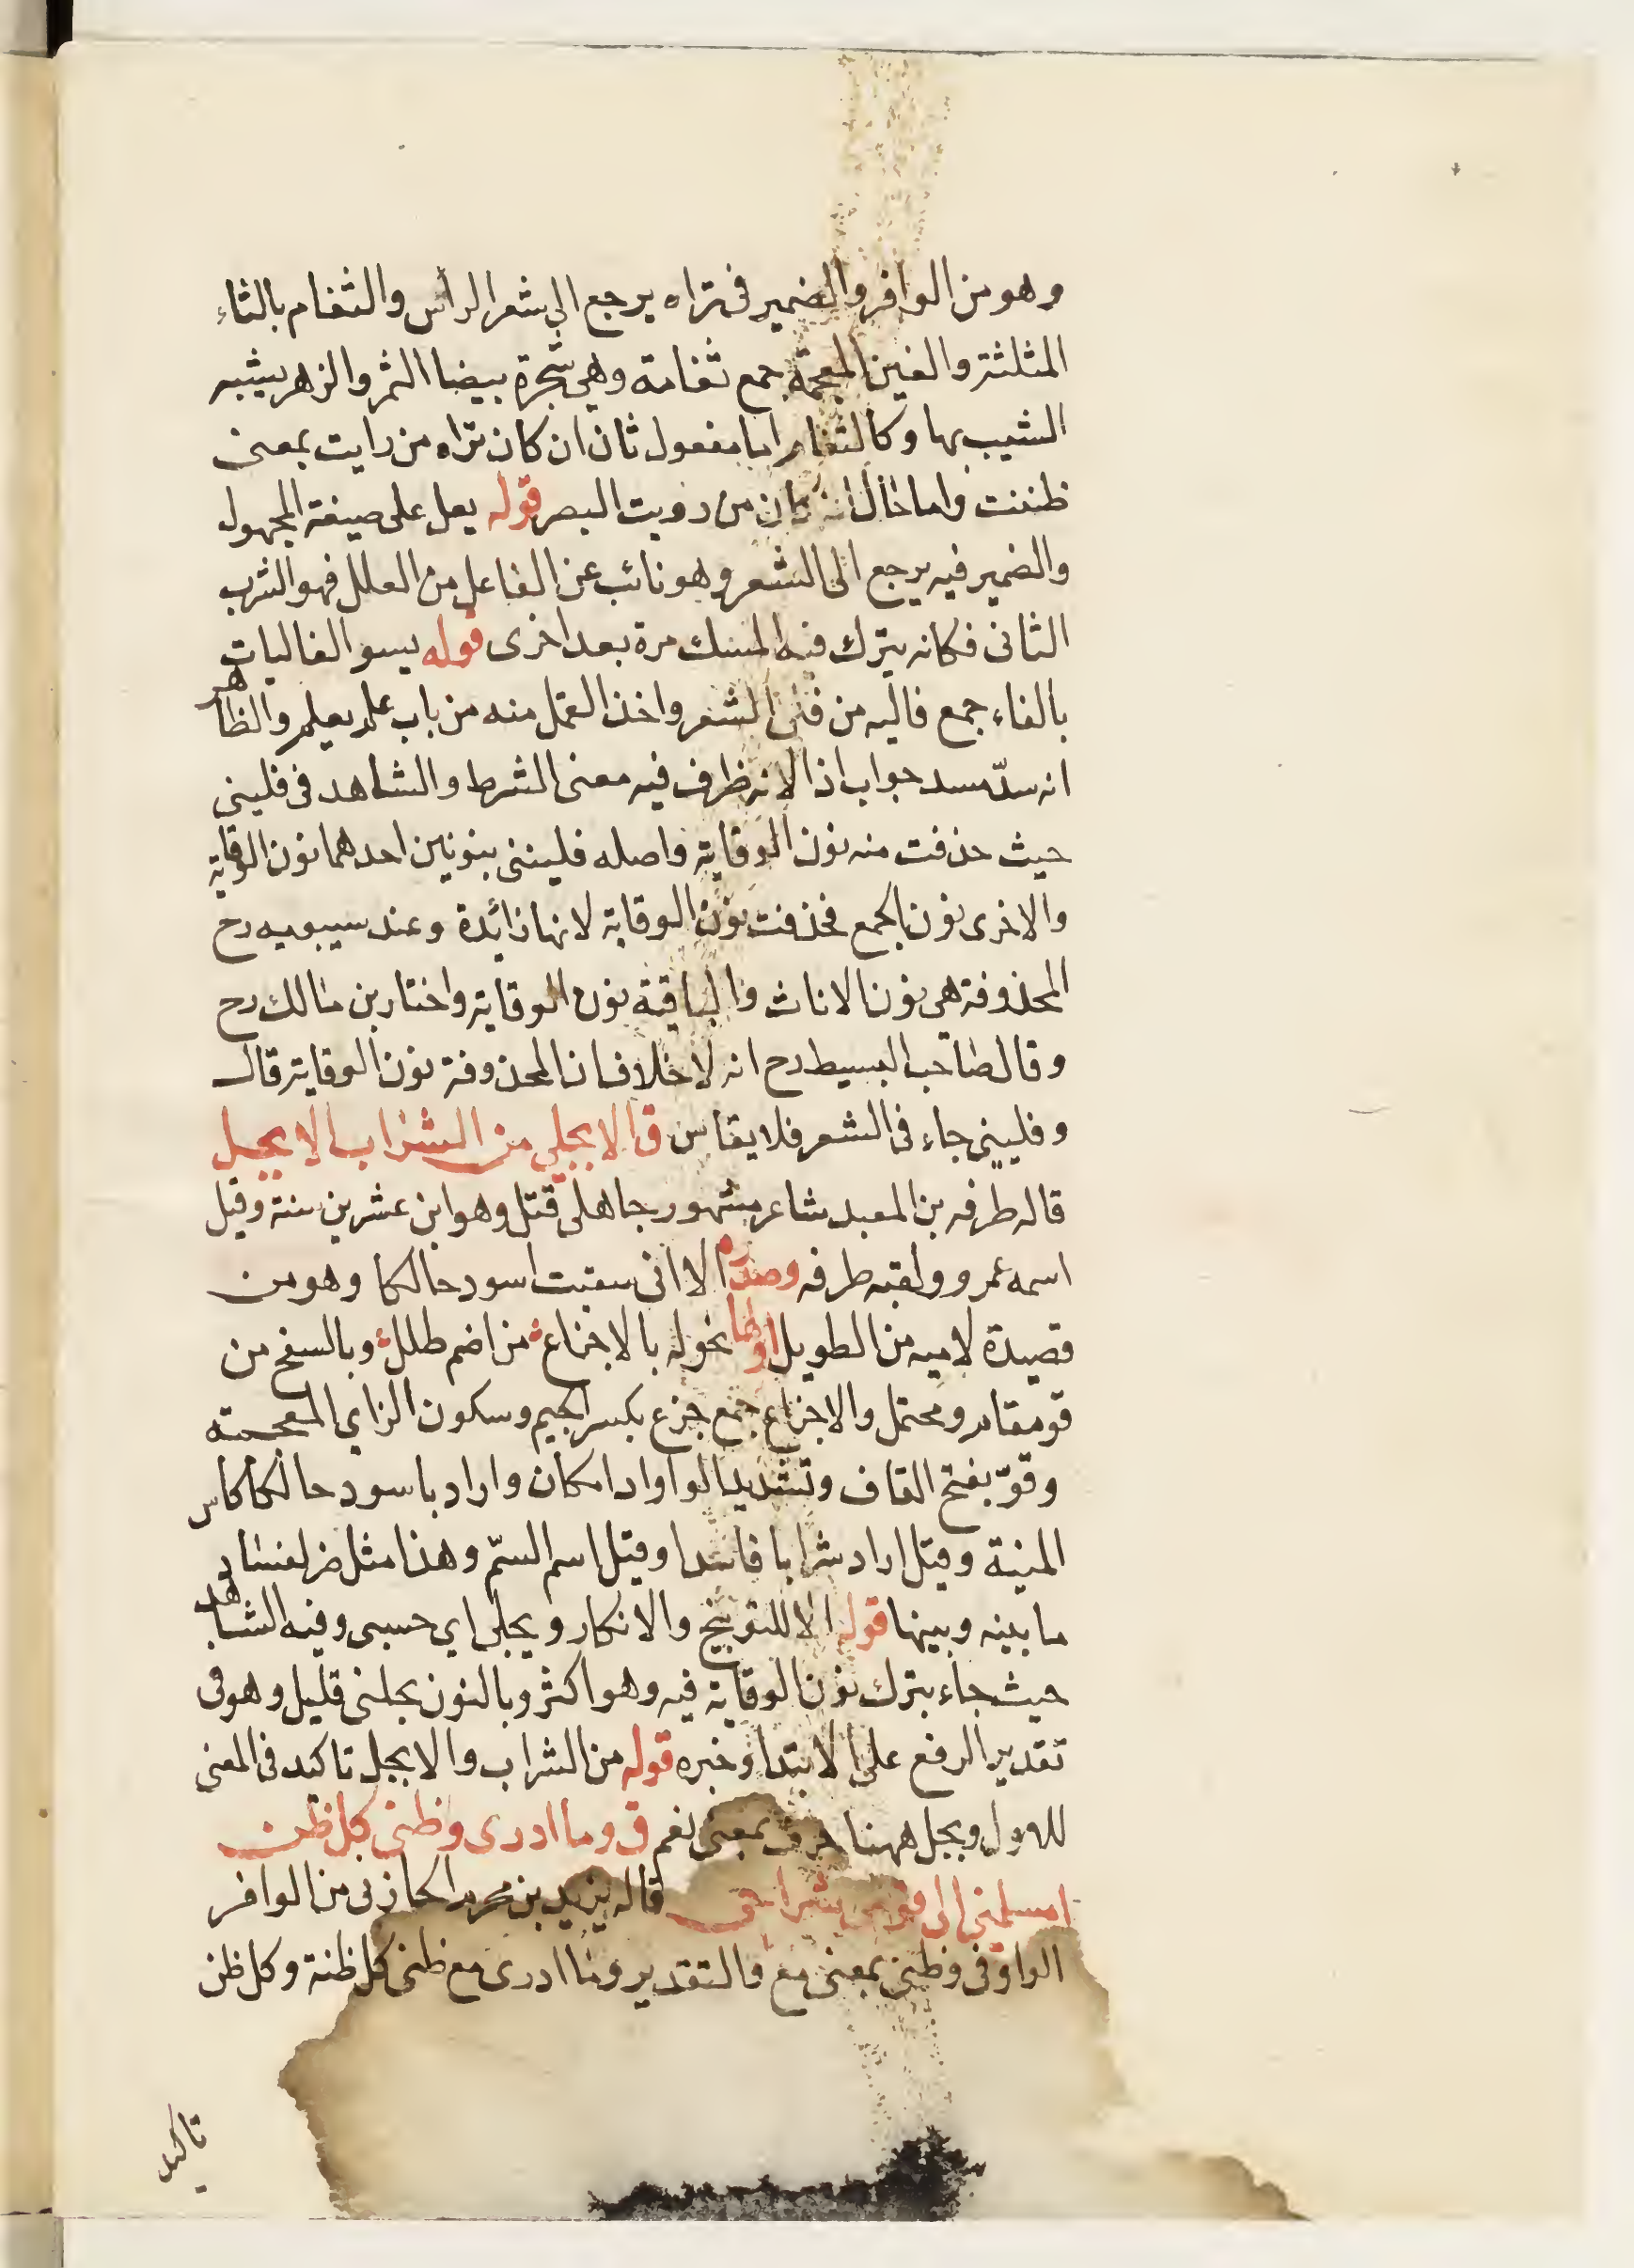 وهو من الوافر والضمير فى تراه يرجع الى شعر الراس والثغام بالثاء
المثلثة والغين المعجمة جمع ثغامة وهى شجرة بيضا الثمر والزهر يشبه
الشيب بها وكالثغام اما مفعول ثان ان كان تراه من رايت بمعنى
ظننت واما حال ان كان من رويت البصر قوله يعل على صيغة المجهول
والضمير فيه يرجع الى الشعر وهو نائب عن الفاعل من العلل فهو الشرب
الثانى فكانه يترك فيه المسك مرة بعد اخرى قوله يسو الفاليات
بالفاء جمع فاليه من فلى الشعر واخذ القمل منه من باب علم يعلم والظاهر
انه سدّ مسد جواب اذا لانه ظرف فيه معنى الشرط والشاهد فى فلينى
حيث حذفت منه نون الوقاية واصله فليننى بنونين احدهما نون الوقاية
والاخرى نون الجمع فحذفت نون الوقاية لانها زائدة وعند سيبويه رح
المحذوفة هى نون الاناث والباقية نون الوقاية واختار بن مالك رح
وقال صاحب البسيط رح انه لا خلاف ان المحذوفة نون الوقاية قال
وفلينى جاء فى الشعر فلا يقاس ق الا بجلى من الشراب الا بجل
قاله طرفه بن المعبد شاعر مشهور جاهلى قتل وهو ابن عشرين سنة وقيل
اسمه عمرو ولقبه طرفه وصدره الا انى سقيت اسود حالكا وهو من
قصيدة لاميه من الطويل اولها نخوله بالاجزاع من اضم طلل وبالسفح من
قو مقام ومحتمل والاجزاع جمع جزع بكسر الجيم وسكون الزاي المعجمة
وقوّ بفتح القاف وتشديد الواو اد امكان واراد باسود حالكا كاس
المنية وقيل اراد شرابا فاسدا وقيل اسم السمّ وهذا مثل ضر لفساد
ما بينه وبينها قوله الا للتوبيخ والانكار وبجلى اي حسبى وفيه الشاهد
حيث جاء بترك نون الوقاية فيه وهو اكثر وبالنون بجلنى قليل وهو فى
تقدير الرفع على الابتداء وخبره قوله من الشراب والا بجل تاكيد فى المعنى
للاول وبجل ههنا حرف بمعنى نعم ق وما ادرى وظنى كل ظن
امسلمنى الى قومى شراحى قاله يزيد بن محرم الحازنى من الوافر
الواو فى وظنى بمعنى مع والتقدير وما ادرى مع ظنى كل ظنة وكل ظن
تاكيد